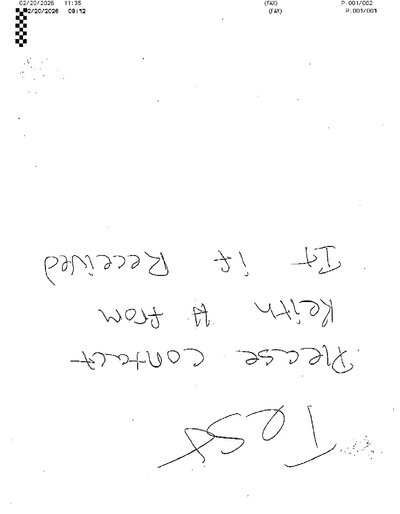 02/20/2026 11:35 (FAX) P.001/002
02/20/2026 09:12 (FAX) P.001/001
Test
Please contact
Keith H from
It if Received